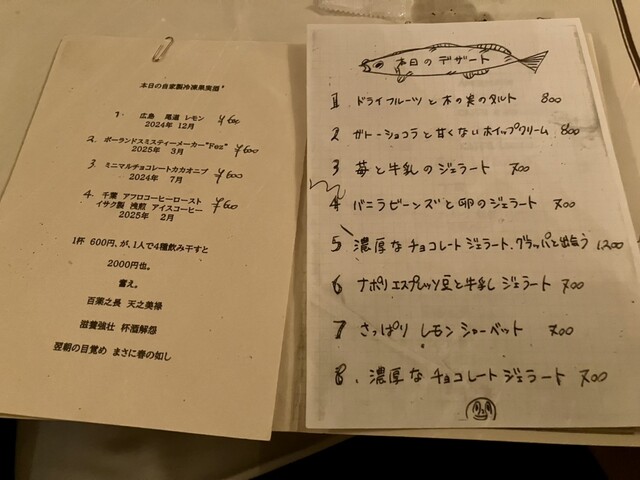 本日の自家製冷凍果実酒
1 広島 尾道 レモン ¥600
2024年 12月
2. ポーランドスミスティーメーカー"Fez" ¥600
2025年 3月
3. ミニマルチョコレートカカオニブ ¥600
2024年 7月
4. 千葉 アフロコーヒーロースト ¥600
イサク製 浅煎 アイスコーヒー
2025年 2月
1杯 600円、が、1人で4種飲み干すと
2000円也。
奮え。
百薬之長 天之美禄
滋養強壮 杯酒解怨
翌朝の目覚め まさに春の如し
本日のデザート
1 ドライフルーツと木の実のタルト 800
2 ガトーショコラと甘くないホイップクリーム 800
3 苺と牛乳のジェラート 700
4 バニラビーンズと卵のジェラート 700
5 濃厚なチョコレートジェラート、グラッパと出会う 1200
6 ナポリエスプレッソ豆と牛乳ジェラート 700
7 さっぱり レモンシャーベット 700
8. 濃厚なチョコレートジェラート 700